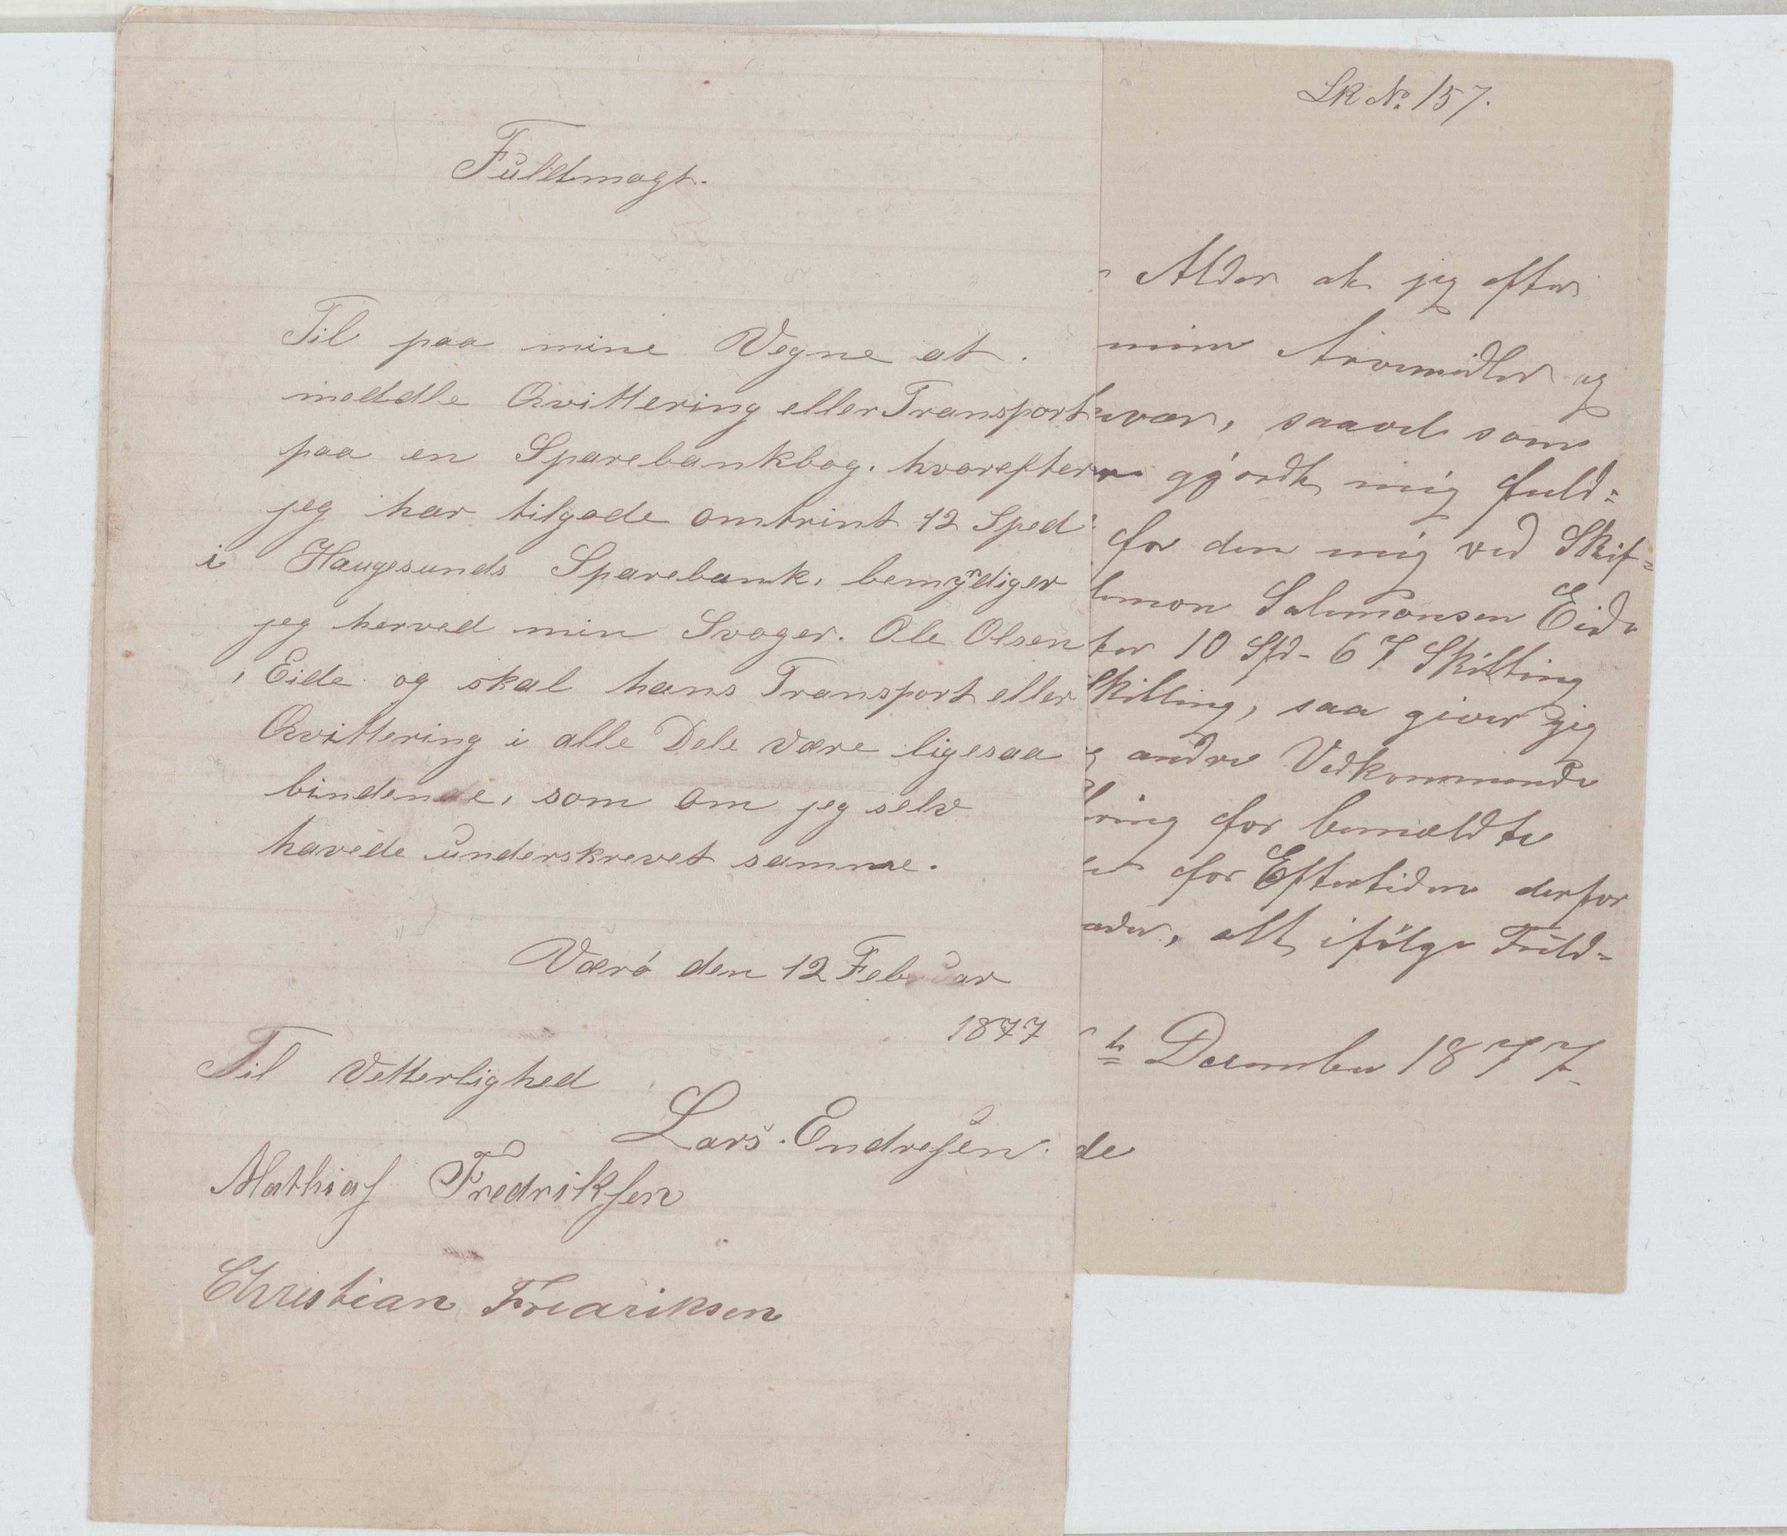 Fuldmagt.
Til paa mine Vegne at
meddele Qvittering eller Transport
paa en Sparebankbog. hvorefter
jeg har tilgode omtrint 12 Sped
i Haugesunds Sparebank, bemyndiger
jeg herved min Svoger. Ole Olsen
Eide og skal hans Transport eller
Qvittering i alle Dele være ligesaa
bindende, som om jeg selv
havede underskrevet samme.
Værø den 12 Februar
1877
Til Vetterlighed
Lars. Endresen.
Mathias Fredriksen
Christian Fredriksen
Sk No. 157.
Alder at jeg efter
mine Arvemidler og
vær, saavel som
gjordt mig fuld=
for den mig ved Skif=
lomon Salomonsen Eide
ter 10 Spd- 67 Skilling
Skilling, saa giver jeg
andre Vedkommende
for bemældte
for Eftertiden derfor
alt ifölge Fuld=
December 1877
de